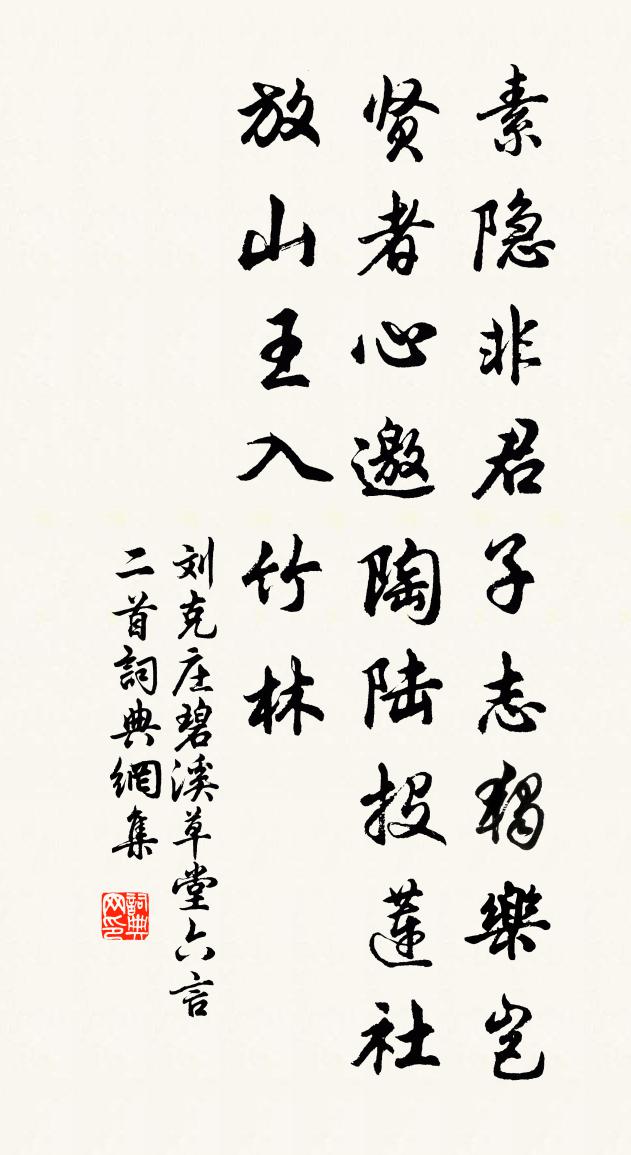 素隐非君子志獨樂岂
贤者心邀陶陆投莲社
放山王入竹林
刘克庄碧溪草堂六言
二首詞典網集
詞典
网印